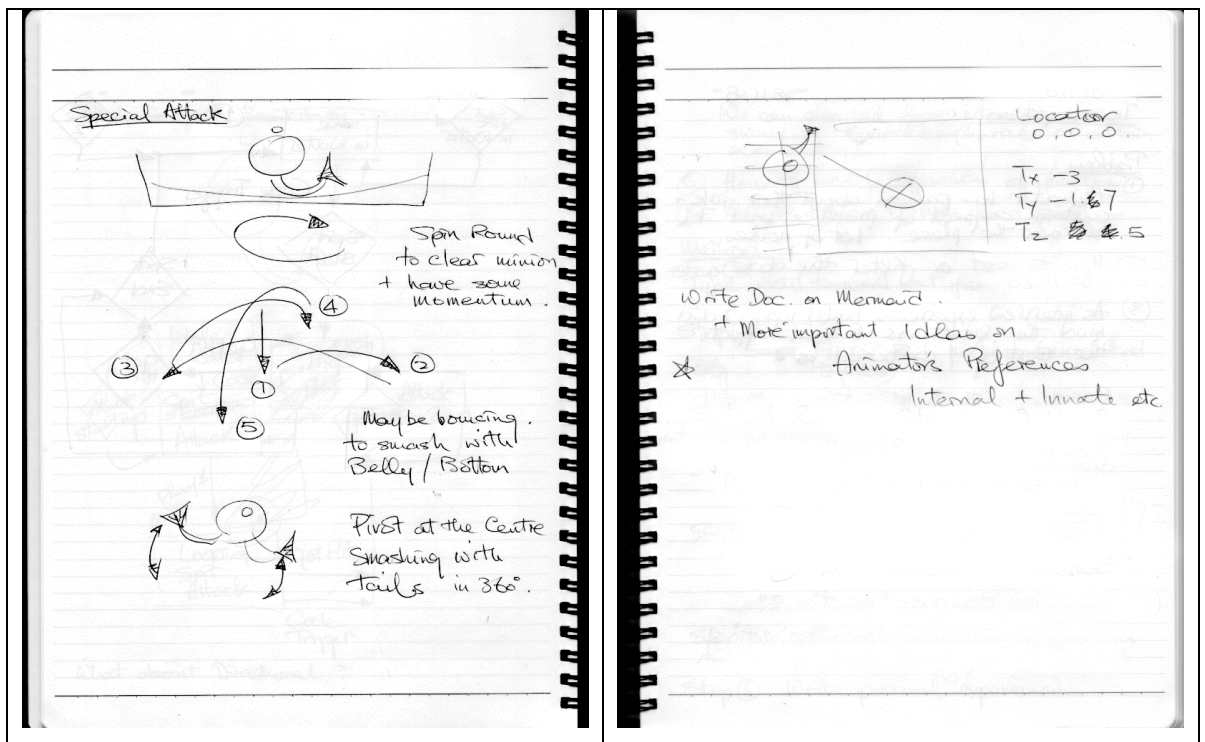 Special Attack
Spin Round
to clear minion
+ have some
momentum.
④
③
②
①
⑤
Maybe bouncing.
to smash with
Belly / Bottom
Pivot at the Centre
Smashing with
tails in 360°.
Locator
0, 0, 0.
Tx -3
Ty -1.67
Tz .5
Write Doc. on Mermaid.
+ More important Ideas on
Animator's Preferences
Internal + Innate etc.